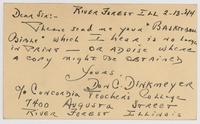 River Forest Ill 2-13-34
Dear Sir:-
Please send me your "Basketball
Bible" which I hear is no longer
in print - or advise where
a copy might be obtained
Yours,
Don C. Dinkmeyer
c/o Concordia Teacher's College
7400 Augusta Street
River Forest Illinois